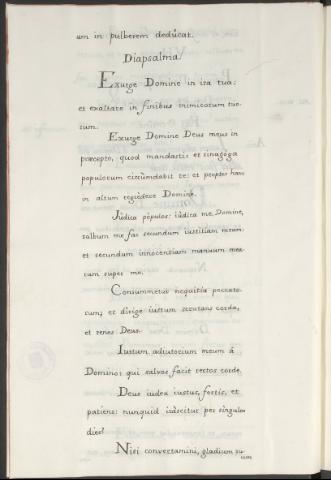 um in pulberem dedúcat.
Diapsalma.
Exurge Domine in ira tua:
et exaltare in finibus inimicorum tuo-
rum.
Exurge Domine Deus meus in
precepto, quod mandasti: et sinagóga
populorum circùmdabit te: et propter hanc
in altum regrèdere Domine.
Júdica pópulos: iúdica me Domine,
salbum me fac secundum iustitiam meam:
et secundum innocentiam manuum mea-
rum super me.
Consummetur nequitia peccato-
rum; et dirige iustum scrutans corda,
et renes Deus.
Iustum adiutorium meum á
Domino: qui salvos facit rectos corde.
Deus iudex iustus, fortis, et
patiens: nunquid iráscitur per singulos
dies?
Nisi convertamini, gladium su-